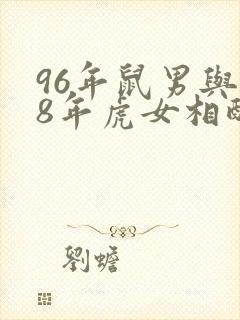 96年鼠男與
8年虎女相配
劉蟾